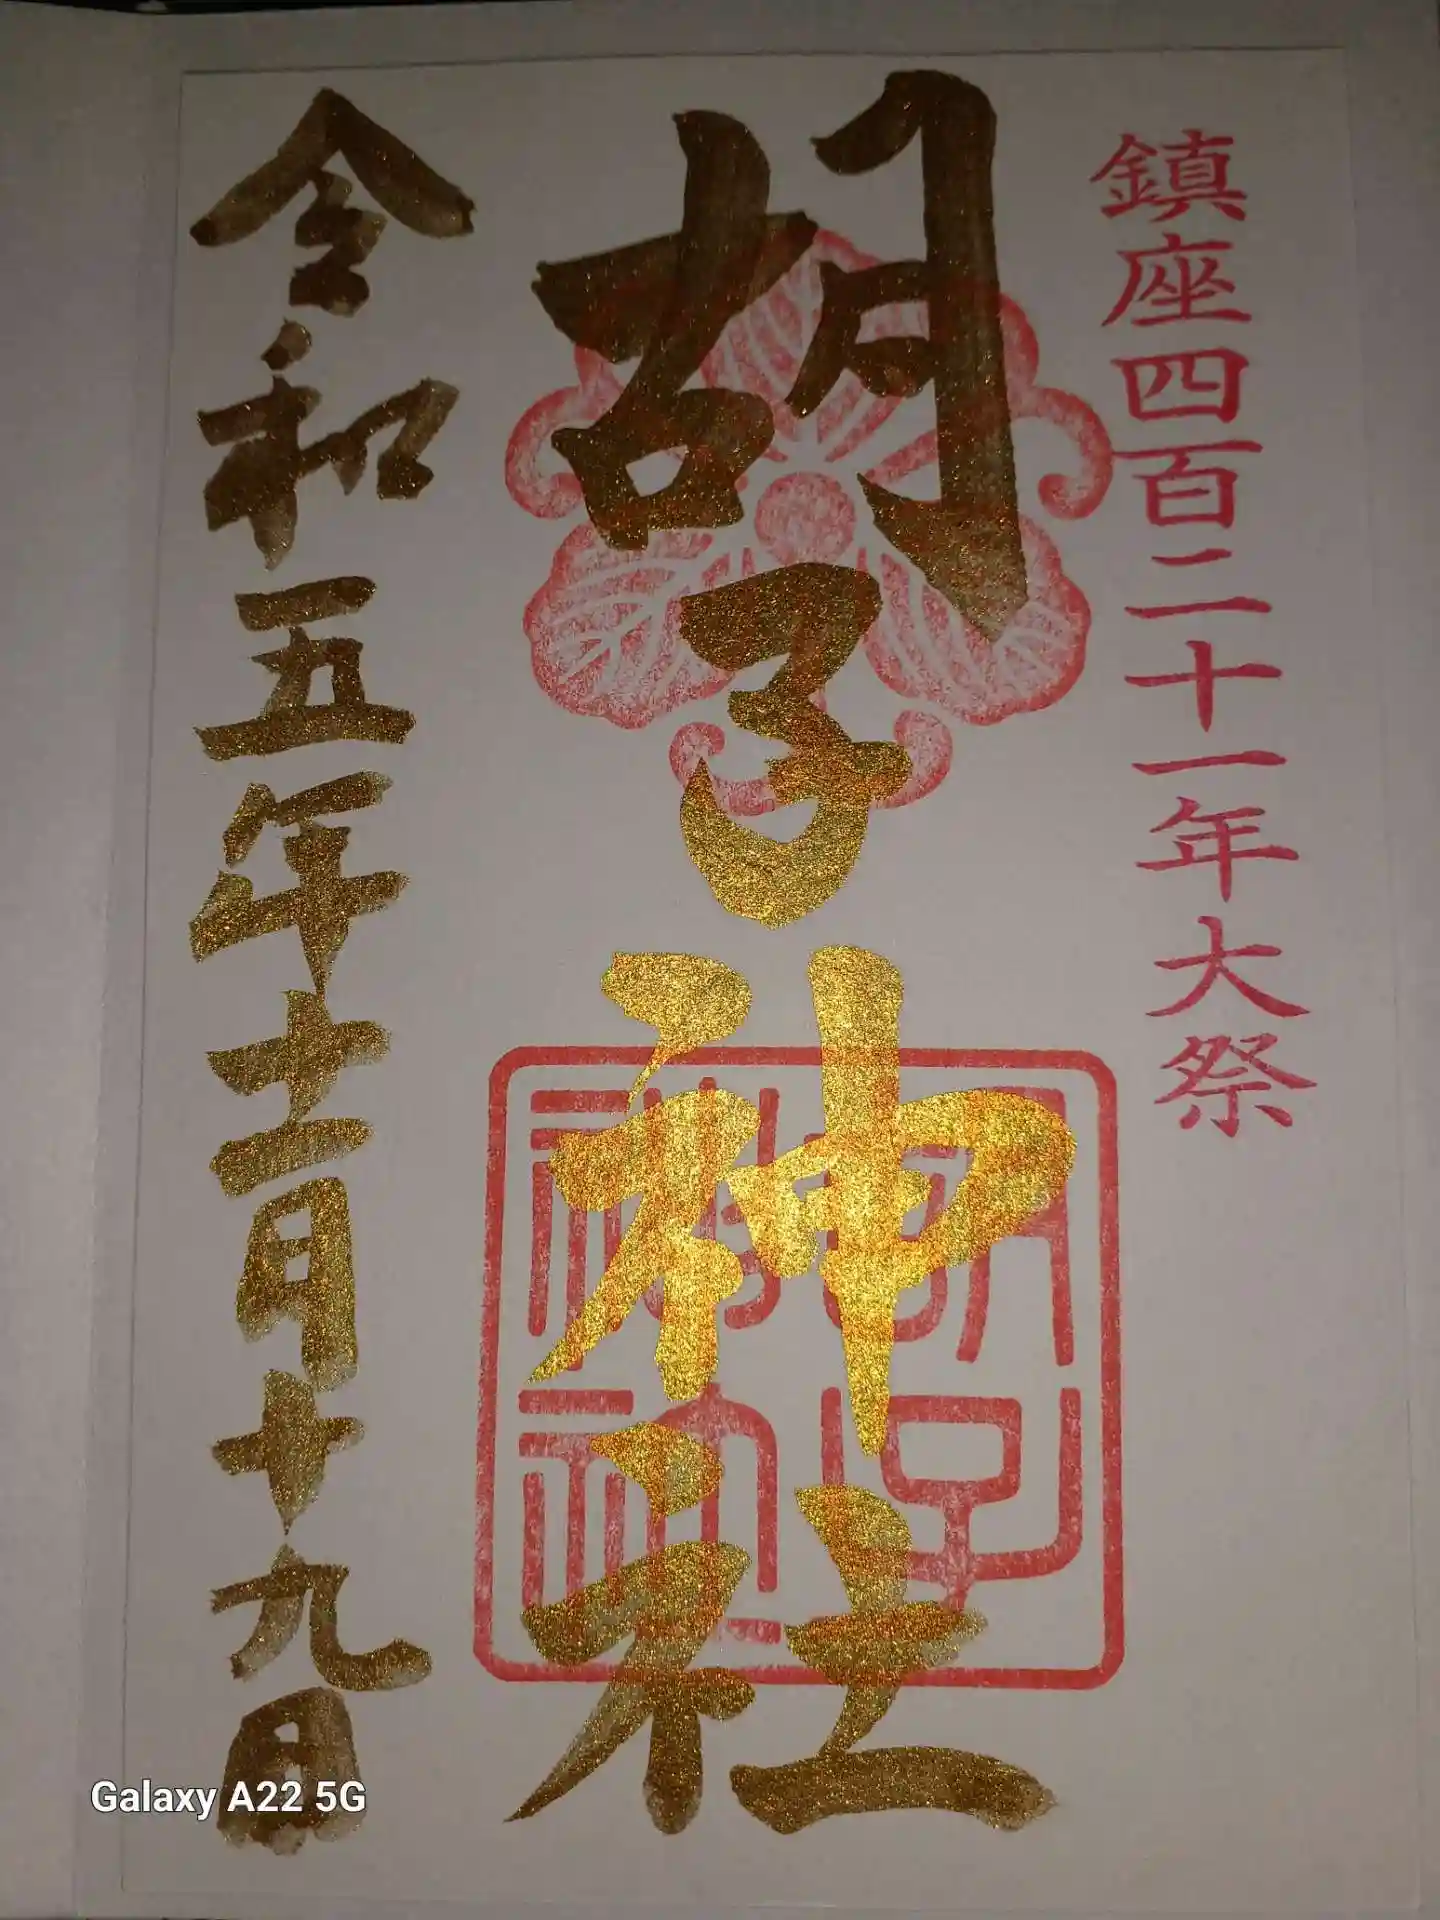 鎮座四百二十一年大祭
胡子神社
胡子神社
令和五年十一月十九日
Galaxy A22 5G